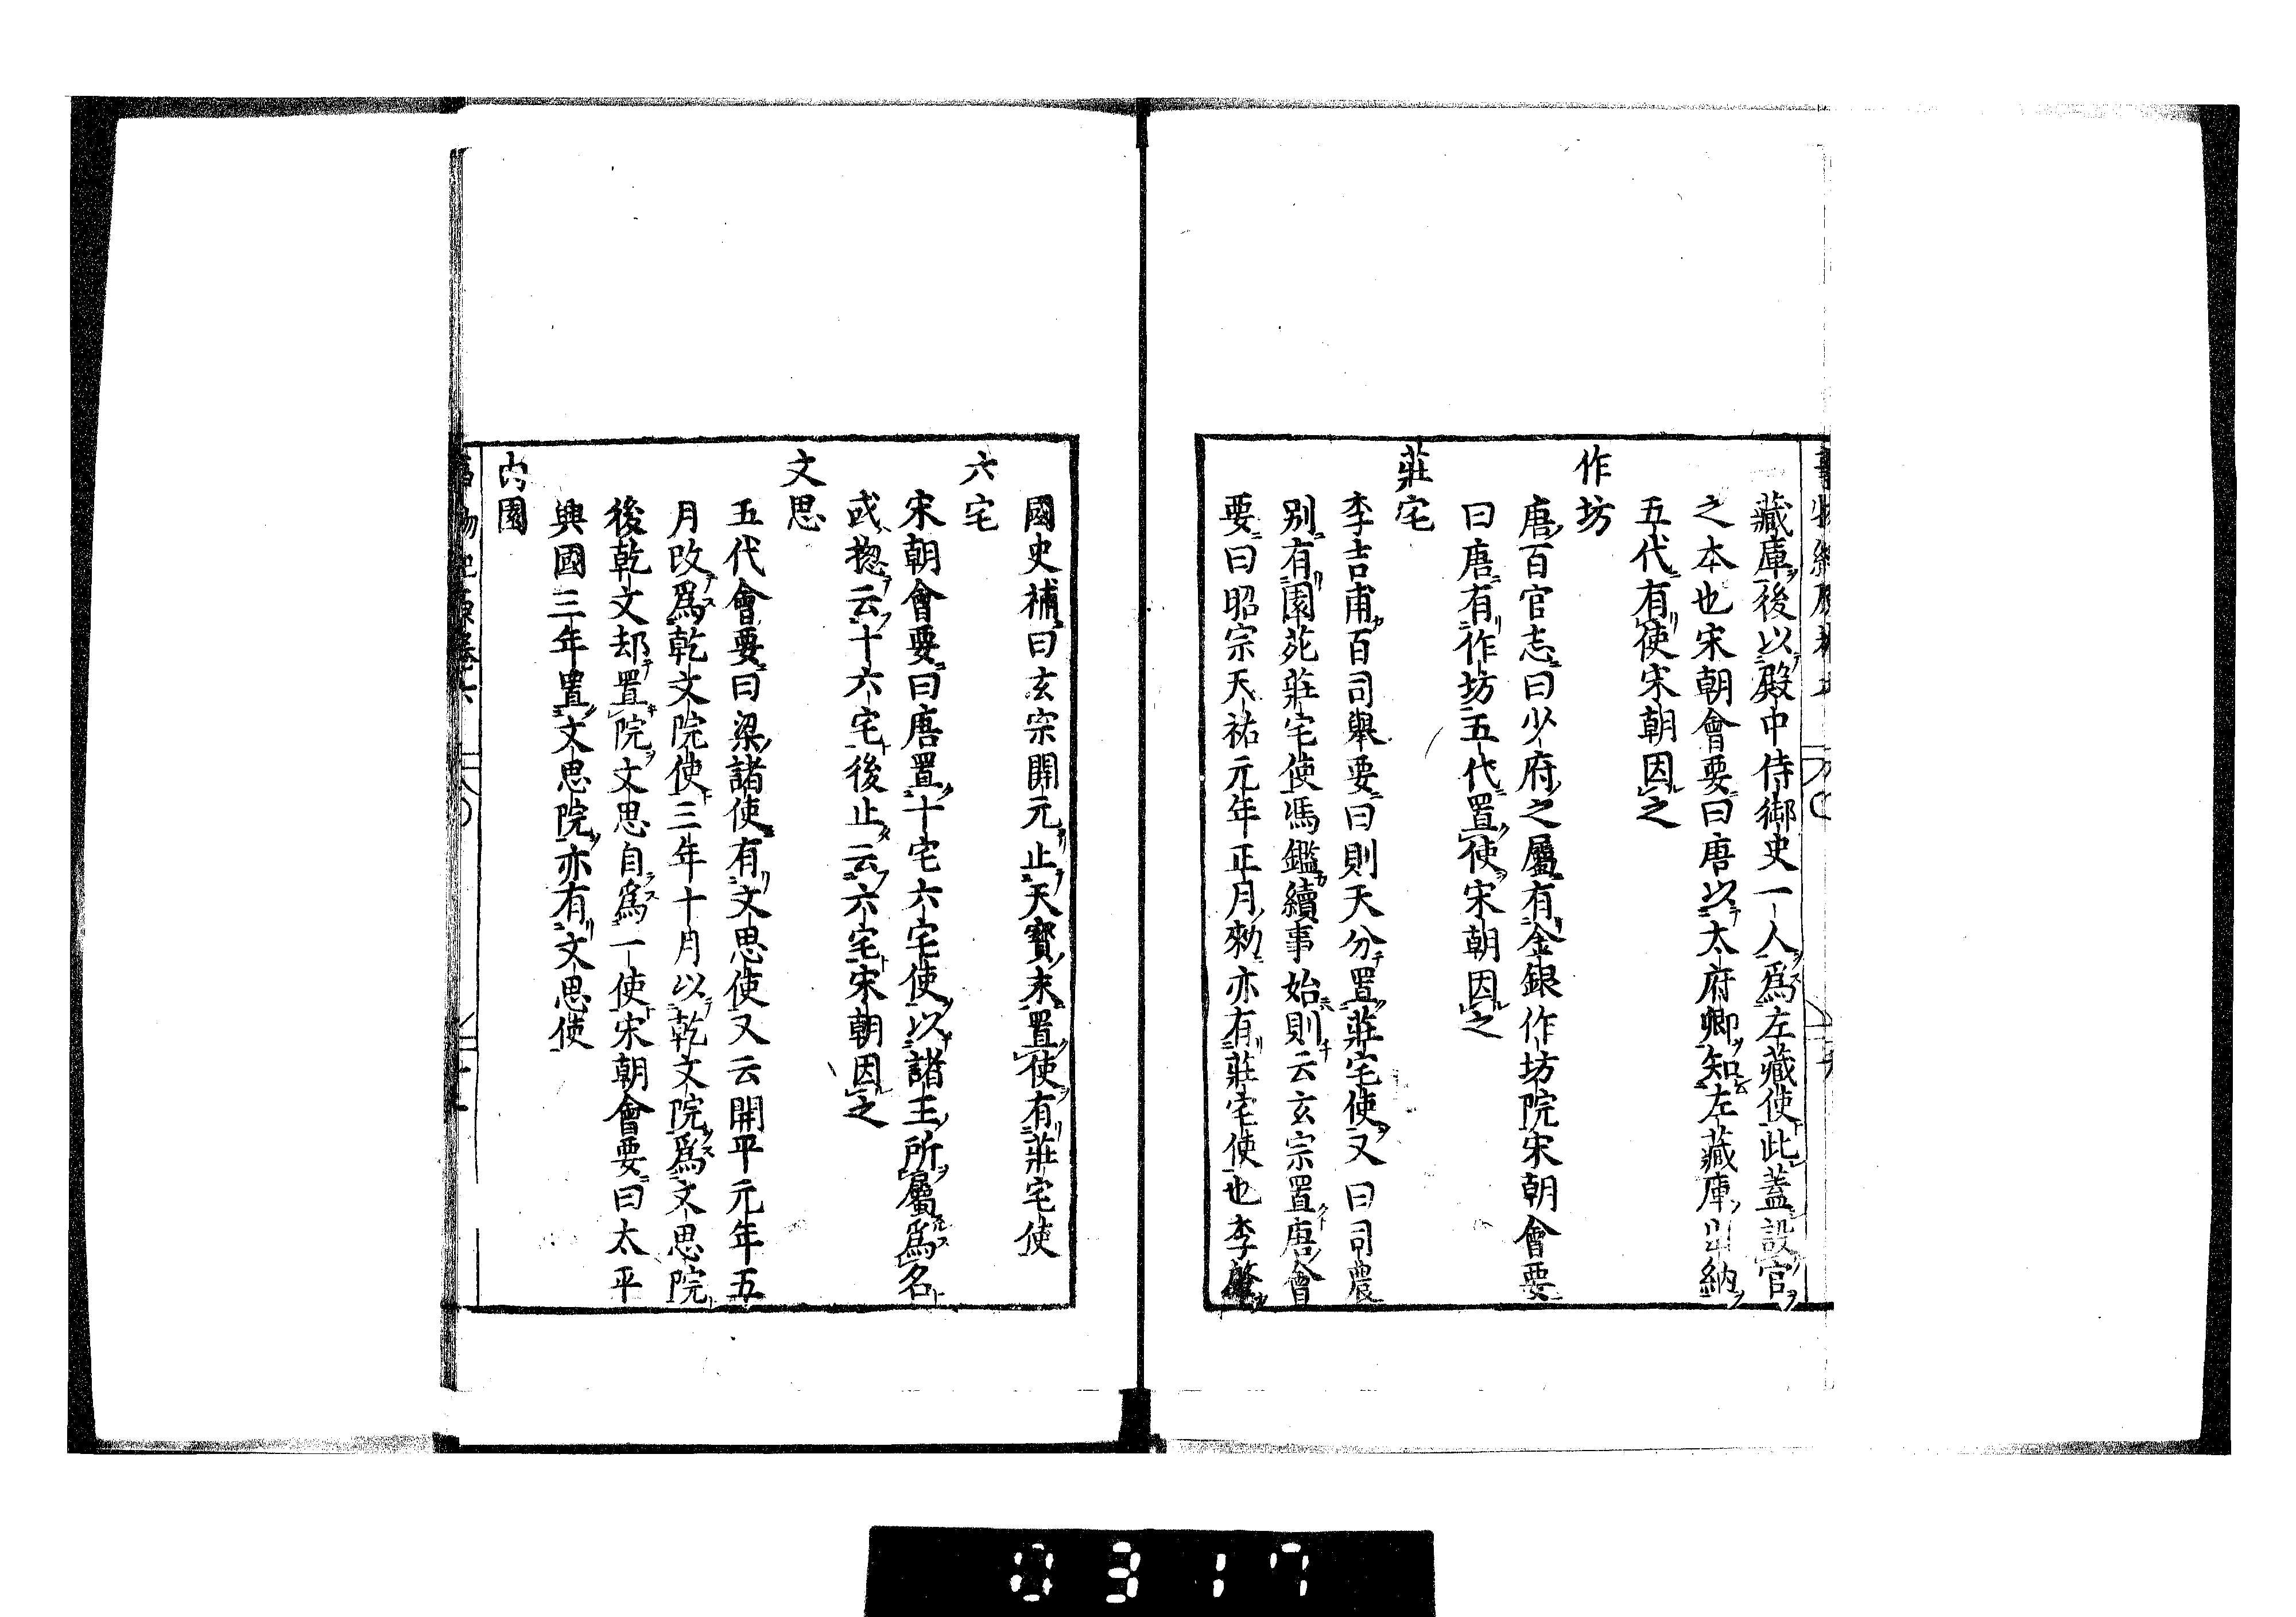 藏庫後以殿中侍御史一人爲左藏使此蓋設官
之本也宋朝會要曰唐以太府卿知左藏庫出納
五代有使宋朝因之
作坊
唐百官志曰少府之屬有金銀作坊院宋朝會要
曰唐有作坊五代置使宋朝因之
莊宅
李吉甫百司舉要曰則天分置莊宅使又曰司農
別有園苑莊宅使馮鑑續事始則云玄宗置唐會
要曰昭宗天祐元年正月勑亦有莊宅使也李肇
國史補曰玄宗開元止天寳末置使有莊宅使
六宅
宋朝會要曰唐置十宅六宅使以諸王所屬爲名
或揔云十六宅後止云六宅宋朝因之
文思
五代會要曰梁諸使有文思使又云開平元年五
月改爲乾文院使三年十月以乾文院爲文思院
後乾文却置院文思自爲一使宋朝會要曰太平
興國三年置文思院亦有文思使
内園
事物紀原卷六
0317